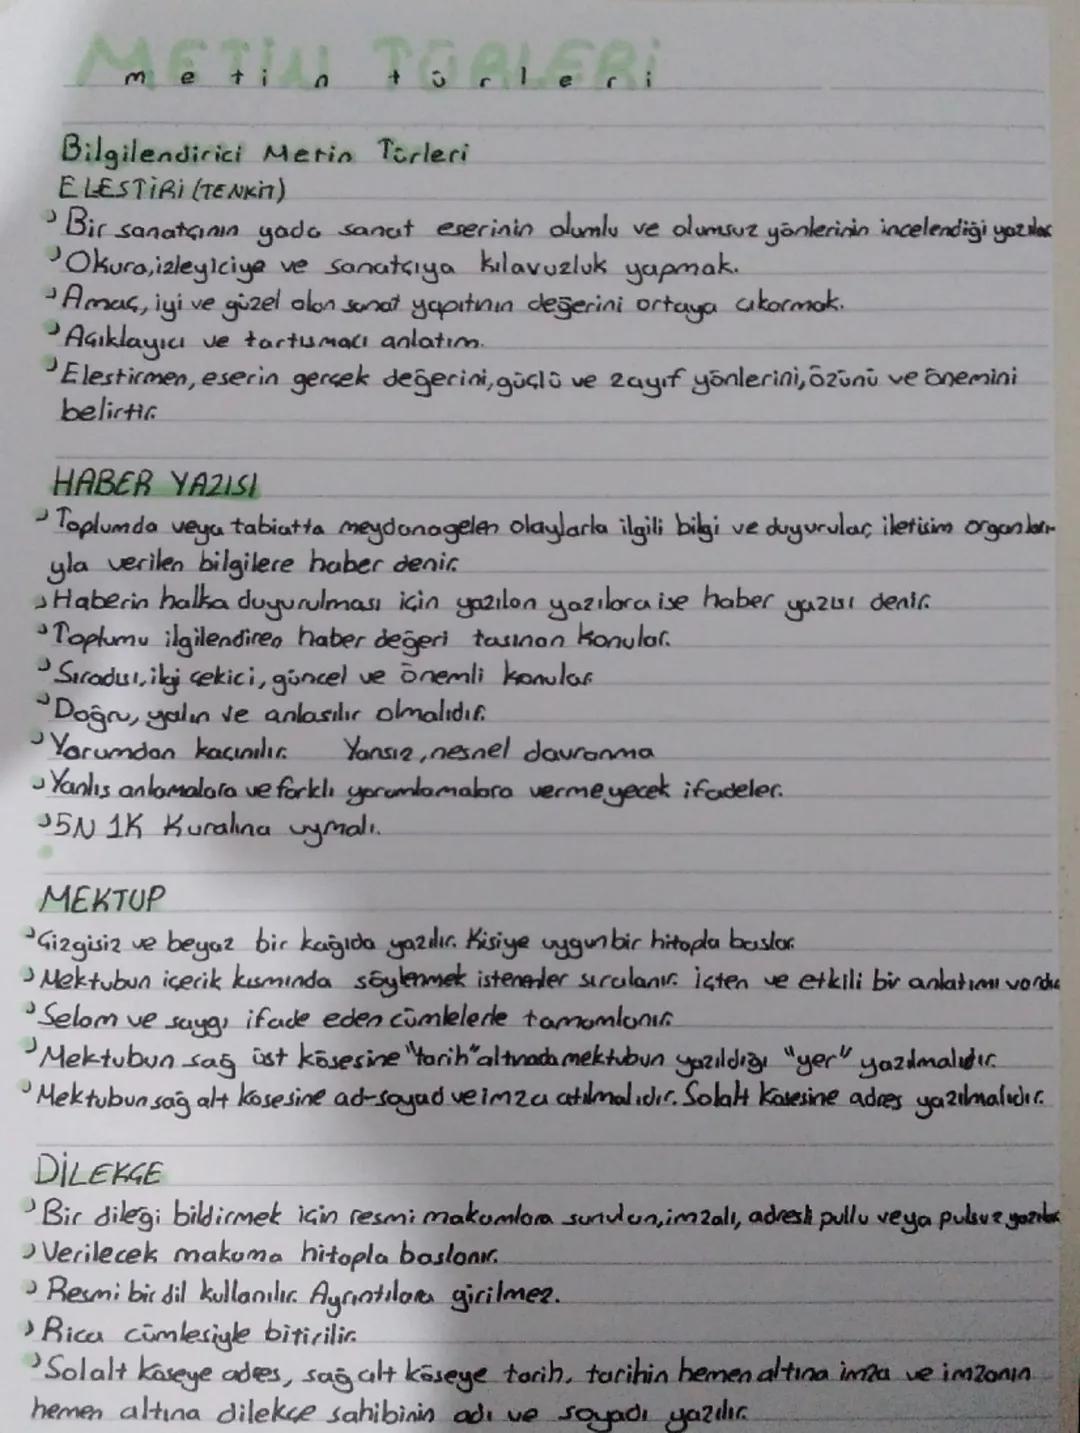 METİN TÜRLERİ
metin türleri
Bilgilendirici Metin Türleri
ELESTİRİ (TENKİT)
Bir sanatçının yada sanat eserinin olumlu ve olumsuz yönlerinin incelendiği yazılar
Okura, izleyiciye ve sanatçıya kılavuzluk yapmak.
Amaç, iyi ve güzel olan sanat yapıtının değerini ortaya cıkarmak.
Açıklayıcı ve tartısmacı anlatım.
Elestirmen, eserin gerçek değerini, güçlü ve zayıf yönlerini, özünü ve önemini
belirtir.
HABER YAZISI
Toplumda veya tabiatta meydanagelen olaylarla ilgili bilgi ve duyurular, iletisim organları-
yla verilen bilgilere haber denir.
Haberin halka duyurulması için yazılan yazılara ise haber yazısı denir.
Toplumu ilgilendiren haber değeri tasınan konular.
Sıradısı, ilgi çekici, güncel ve önemli konular
Doğru, yalın ve anlasılır olmalıdır.
Yorumdan kacınılır. Yansız, nesnel davranma
Yanlıs anlamalara ve farklı yorumlamalara vermeyecek ifadeler.
5N 1K Kuralına uymalı.
MEKTUP
Çizgisiz ve beyaz bir kağıda yazılır. Kisiye uygun bir hitapla baslar.
Mektubun içerik kısmında söylenmek istenenler sıralanır. içten ve etkili bir anlatımı vardır
Selam ve saygı ifade eden cümlelerle tamamlanır.
Mektubun sağ üst kösesine "tarih" altınada mektubun yazıldığı "yer" yazılmalıdır.
Mektubun sağ alt kosesine ad-soyad ve imza atılmalıdır. Sol alt kosesine adres yazılmalıdır.
DİLEKÇE
Bir dileği bildirmek için resmi makamlara sunulan, imzalı, adresli pullu veya pulsuz yazılar
Verilecek makama hitapla baslanır.
Resmi bir dil kullanılır. Ayrıntılara girilmez.
Rica cümlesiyle bitirilir.
Sol alt köseye adres, sağ alt köseye tarih, tarihin hemen altına imza ve imzanın
hemen altına dilekçe sahibinin adı ve soyadı yazılır.